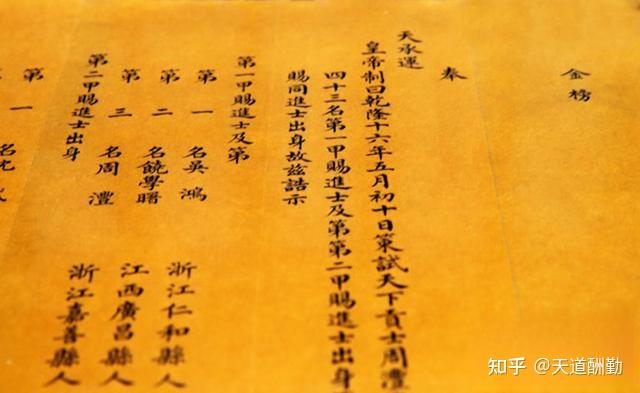 金榜
奉
天承運
皇帝制曰乾隆十六年五月初十日策試天下貢士周澧
四十三名第一甲賜進士及第第二甲賜進士出身
賜同進士出身故茲誥示
第一甲賜進士及第
第一名吳鴻 浙江仁和縣人
第二名饒學曙 江西廣昌縣人
第三名周澧 浙江嘉善縣人
第二甲賜進士出身
第一名沈
知乎 @天道酬勤